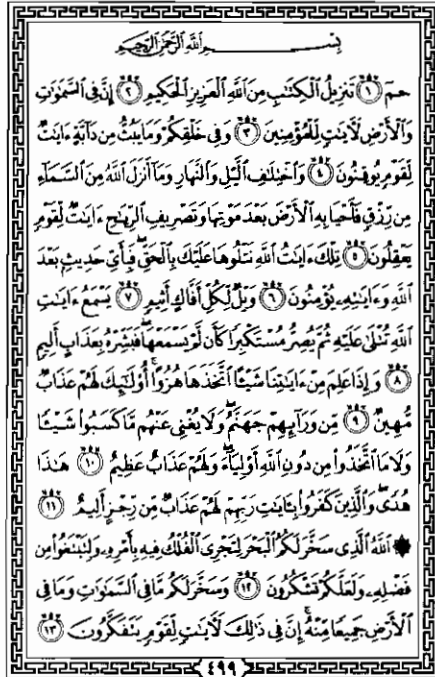 بِسْمِ ٱللَّهِ ٱلرَّحْمَٰنِ ٱلرَّحِيمِ
حمٓ ١ تَنزِيلُ ٱلْكِتَٰبِ مِنَ ٱللَّهِ ٱلْعَزِيزِ ٱلْحَكِيمِ ٢ إِنَّ فِى ٱلسَّمَٰوَٰتِ
وَٱلْأَرْضِ لَءَايَٰتٍ لِّلْمُؤْمِنِينَ ٣ وَفِى خَلْقِكُمْ وَمَا يَبُثُّ مِن دَآبَّةٍ ءَايَٰتٌ
لِّقَوْمٍ يُوقِنُونَ ٤ وَٱخْتِلَٰفِ ٱلَّيْلِ وَٱلنَّهَارِ وَمَآ أَنزَلَ ٱللَّهُ مِنَ ٱلسَّمَآءِ
مِن رِّزْقٍ فَأَحْيَا بِهِ ٱلْأَرْضَ بَعْدَ مَوْتِهَا وَتَصْرِيفِ ٱلرِّيَٰحِ ءَايَٰتٌ لِّقَوْمٍ
يَعْقِلُونَ ٥ تِلْكَ ءَايَٰتُ ٱللَّهِ نَتْلُوهَا عَلَيْكَ بِٱلْحَقِّ ۖ فَبِأَىِّ حَدِيثٍۭ بَعْدَ
ٱللَّهِ وَءَايَٰتِهِۦ يُؤْمِنُونَ ٦ وَيْلٌ لِّكُلِّ أَفَّاكٍ أَثِيمٍ ٧ يَسْمَعُ ءَايَٰتِ
ٱللَّهِ تُتْلَىٰ عَلَيْهِ ثُمَّ يُصِرُّ مُسْتَكْبِرًا كَأَن لَّمْ يَسْمَعْهَا ۖ فَبَشِّرْهُ بِعَذَابٍ أَلِيمٍ
٨ وَإِذَا عَلِمَ مِنْ ءَايَٰتِنَا شَيْـًٔا ٱتَّخَذَهَا هُزُوًا ۚ أُو۟لَٰٓئِكَ لَهُمْ عَذَابٌ
مُّهِينٌ ٩ مِّن وَرَآئِهِمْ جَهَنَّمُ ۖ وَلَا يُغْنِى عَنْهُم مَّا كَسَبُوا۟ شَيْـًٔا
وَلَا مَا ٱتَّخَذُوا۟ مِن دُونِ ٱللَّهِ أَوْلِيَآءَ ۖ وَلَهُمْ عَذَابٌ عَظِيمٌ ١٠ هَٰذَا
هُدًى ۖ وَٱلَّذِينَ كَفَرُوا۟ بِـَٔايَٰتِ رَبِّهِمْ لَهُمْ عَذَابٌ مِّن رِّجْزٍ أَلِيمٌ ١١
۞ ٱللَّهُ ٱلَّذِى سَخَّرَ لَكُمُ ٱلْبَحْرَ لِتَجْرِىَ ٱلْفُلْكُ فِيهِ بِأَمْرِهِۦ وَلِتَبْتَغُوا۟ مِن
فَضْلِهِۦ وَلَعَلَّكُمْ تَشْكُرُونَ ١٢ وَسَخَّرَ لَكُم مَّا فِى ٱلسَّمَٰوَٰتِ وَمَا فِى
ٱلْأَرْضِ جَمِيعًا مِّنْهُ ۚ إِنَّ فِى ذَٰلِكَ لَءَايَٰتٍ لِّقَوْمٍ يَتَفَكَّرُونَ ١٣
٤٩٩